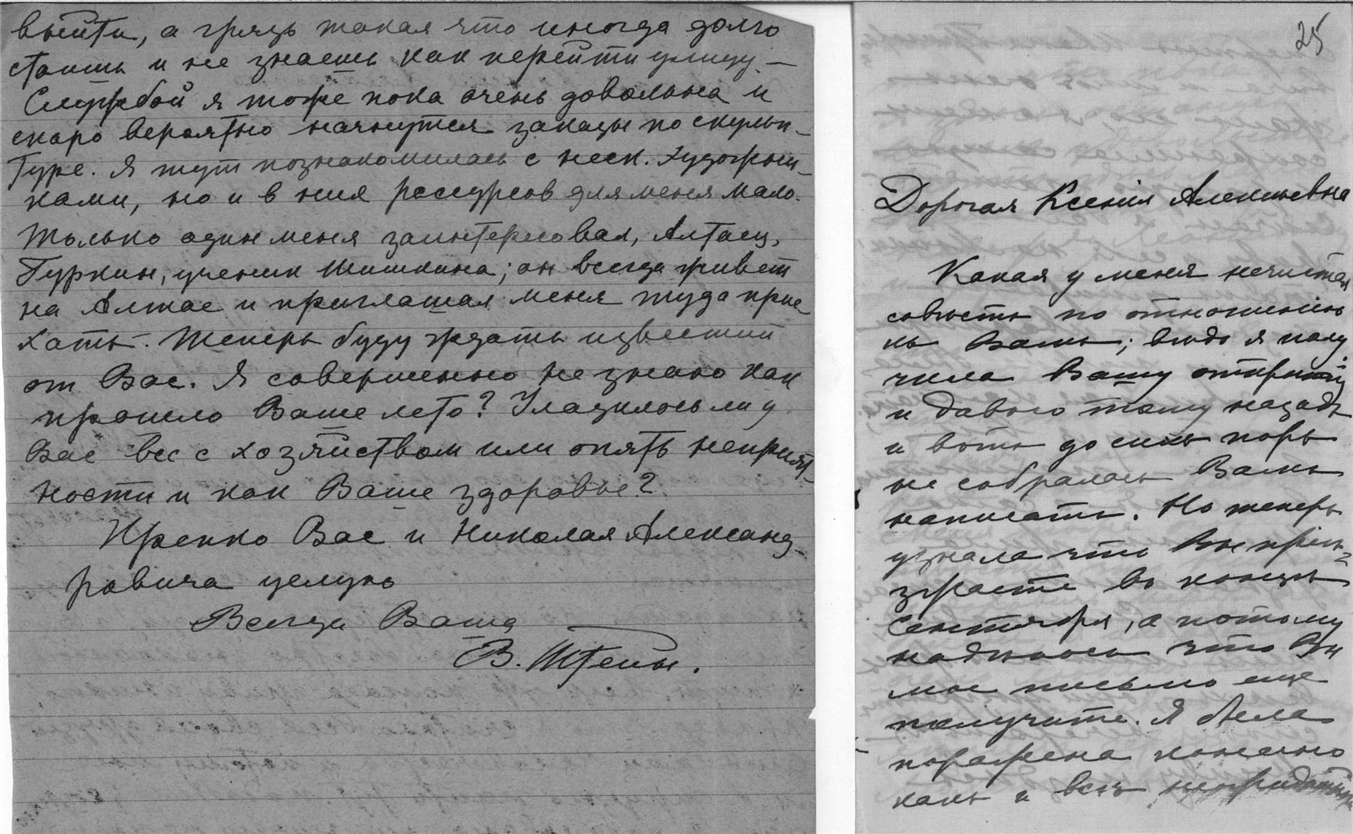 выйти, а грязь такая что иногда долго
стоишь и не знаешь как перейти улицу —
Службой я тоже пока очень довольна и
скоро вероятно начнутся заказы по скульп-
туре. Я тут познакомилась с неск. художни-
ками, но и в них рессурсов для меня мало.
Только один меня заинтересовал, Алтаец,
Гуркин, ученик Шишкина; он всегда живет
на Алтае и приглашал меня туда прие
хать. Теперь буду ждать известий
от Вас. Я совершенно не знаю как
прошло Ваше лето? Уладилось ли у
Вас все с хозяйством или опять неприят-
ности и как Ваше здоровье?
Крепко Вас и Николая Александ-
ровича целую
Всегда Ваша
В. Штейн.
25
Дорогая Ксенія Алексѣевна
Какая у меня нечистая
совѣсть по отношенію
къ Вамъ; вѣдь я полу
чила Вашу открытку
и давно тому назадъ
и вотъ до сихъ поръ
не собралась Вамъ
написать. Но теперь
узнала что Вы прiѣз-
жаете въ концѣ
Сентября, а потому
надѣюсь что Вы
мое письмо еще
получите. Я была
поражена конечно
какъ и всѣ